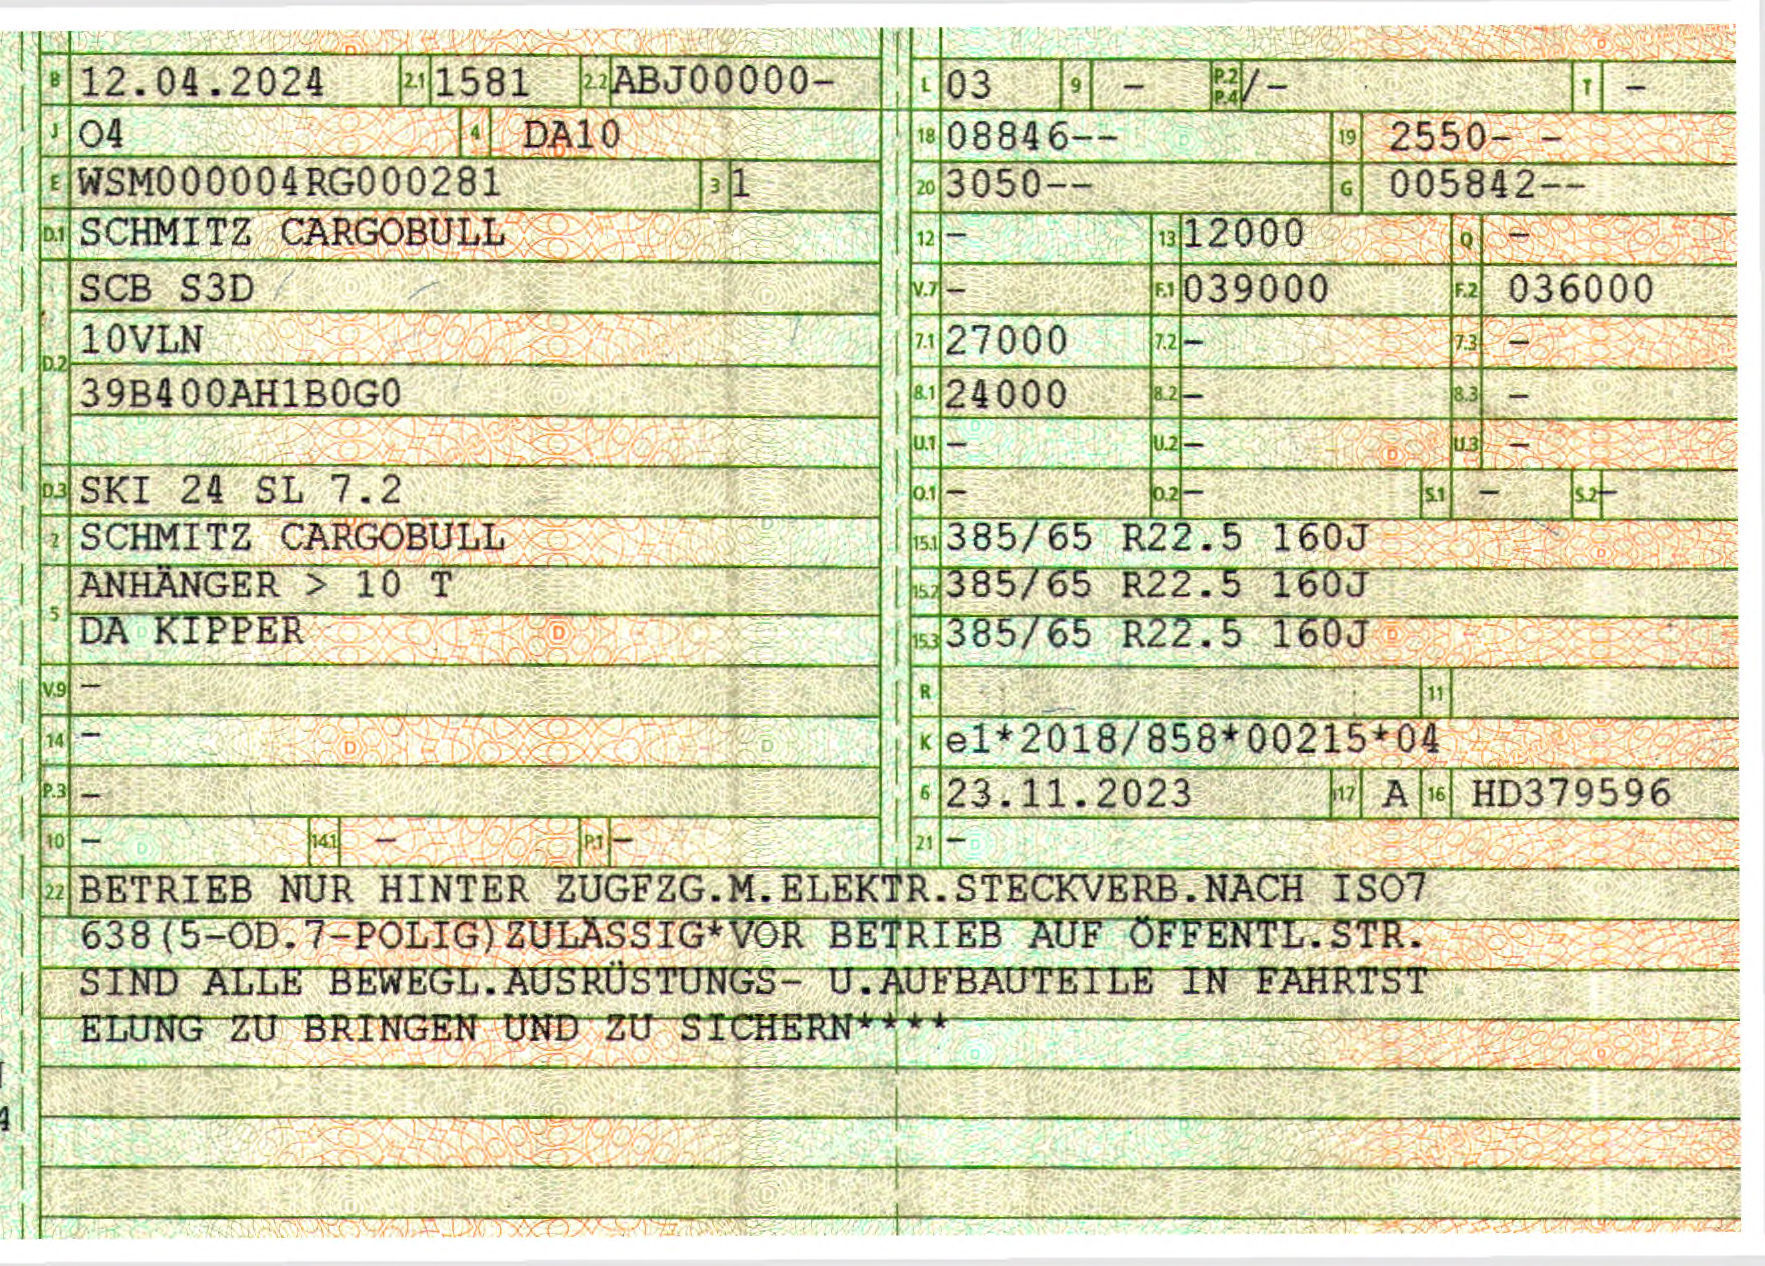 B 12.04.2024 2.1 1581 2.2 ABJ00000-
J 04 4 DA10
E WSM000004RG000281 3 1
D.1 SCHMITZ CARGOBULL
SCB S3D
10VLN
D.2
39B400AH1B0G0
D.3 SKI 24 SL 7.2
2 SCHMITZ CARGOBULL
ANHÄNGER > 10 T
5
DA KIPPER
V.9 -
14 -
P.3 -
10 - 14.1 - P.1 -
L 03 9 - P.2 P.4 /- T -
18 08846-- 19 2550- -
20 3050-- G 005842--
12 - 13 12000 Q -
V.7 - F.1 039000 F.2 036000
7.1 27000 7.2 - 7.3 -
8.1 24000 8.2 - 8.3 -
U.1 - U.2 - U.3 -
O.1 - O.2 - S.1 - S.2 -
15.1 385/65 R22.5 160J
15.2 385/65 R22.5 160J
15.3 385/65 R22.5 160J
R 11
K e1*2018/858*00215*04
6 23.11.2023 17 A 16 HD379596
21 -
22 BETRIEB NUR HINTER ZUGFZG.M.ELEKTR.STECKVERB.NACH ISO7
638(5-OD.7-POLIG)ZULÄSSIG*VOR BETRIEB AUF ÖFFENTL.STR.
SIND ALLE BEWEGL.AUSRÜSTUNGS- U.AUFBAUTEILE IN FAHRTST
ELUNG ZU BRINGEN UND ZU SICHERN****
4